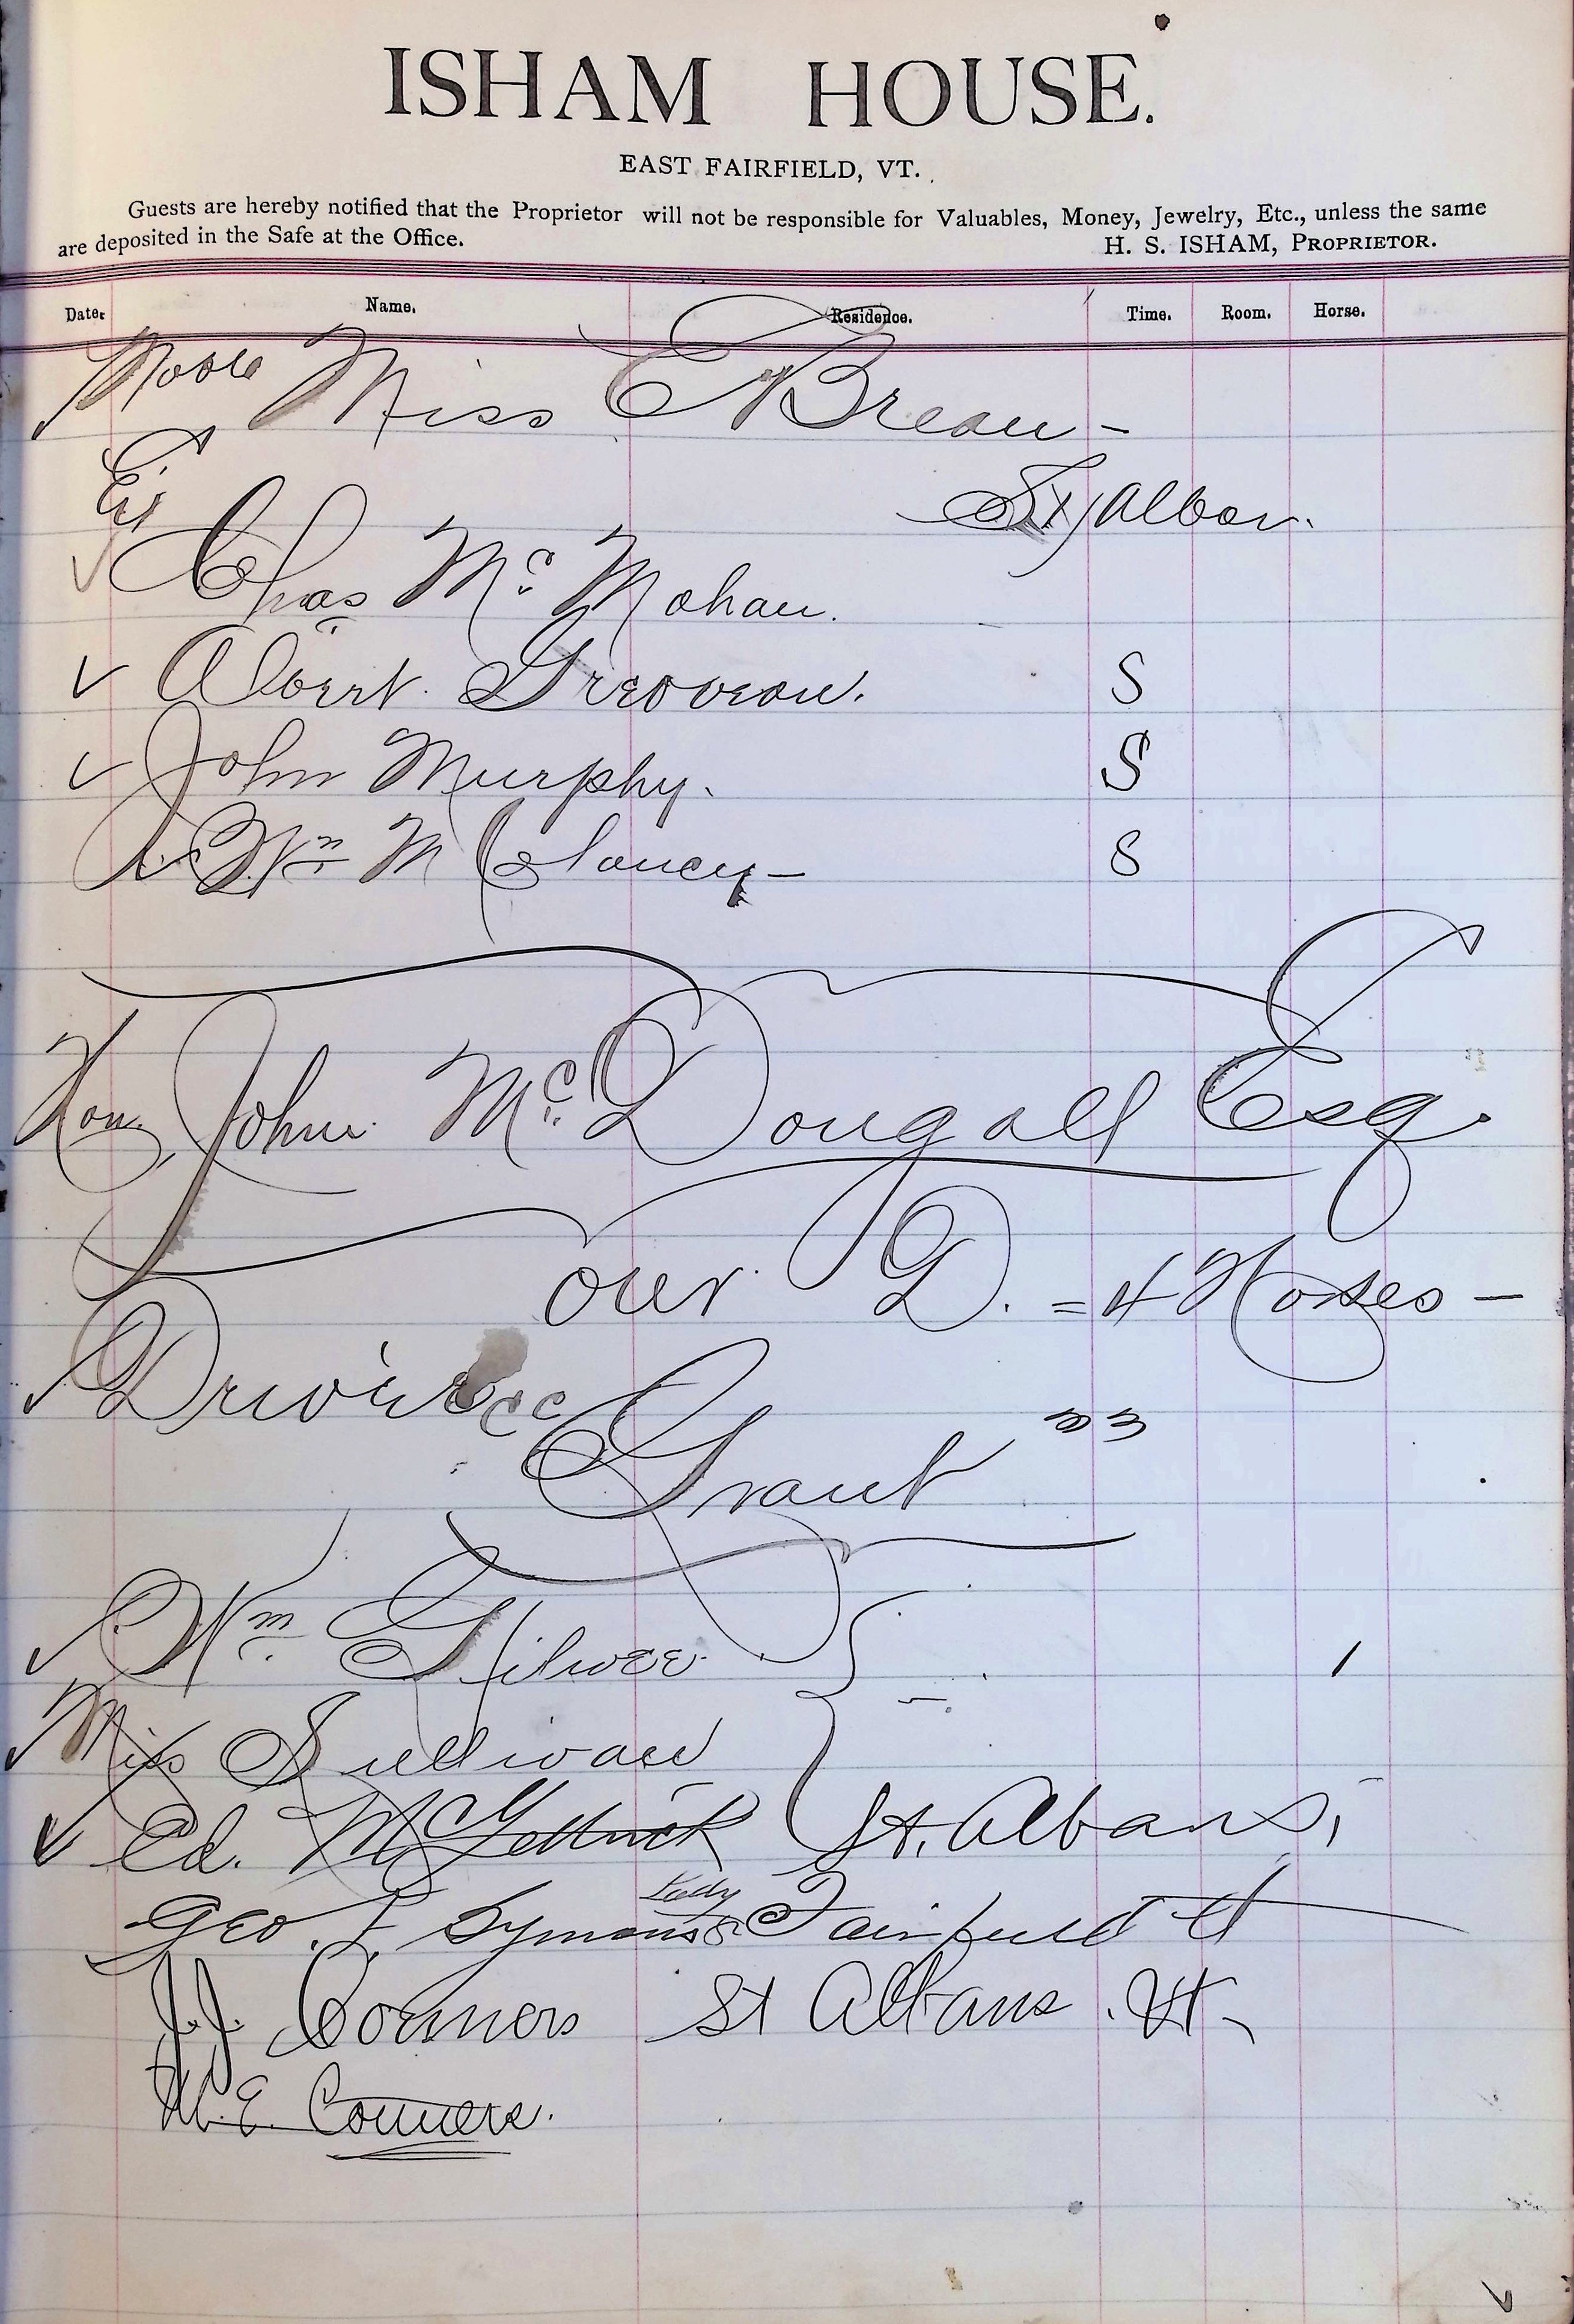 ISHAM HOUSE.
EAST FAIRFIELD, VT.
Guests are hereby notified that the Proprietor will not be responsible for Valuables, Money, Jewelry, Etc., unless the same
are deposited in the Safe at the Office. H. S. ISHAM, PROPRIETOR.
Date. Name. Residence. Time. Room. Horse.
Miss
St Alban.
Chas Mc Mahan.
Albert S
John Murphy. S
Wm M Clancy - S
Hon. John McDougall Esq.
our D. = 4 Horses —
Driver
Grant
Wm 1
Miss Sullivan
Ed. McGettrick St. Albans,
Lady
Geo. Symons & Fairfield Vt
J.J. Conners St Albans. Vt.
M.E. Conners.